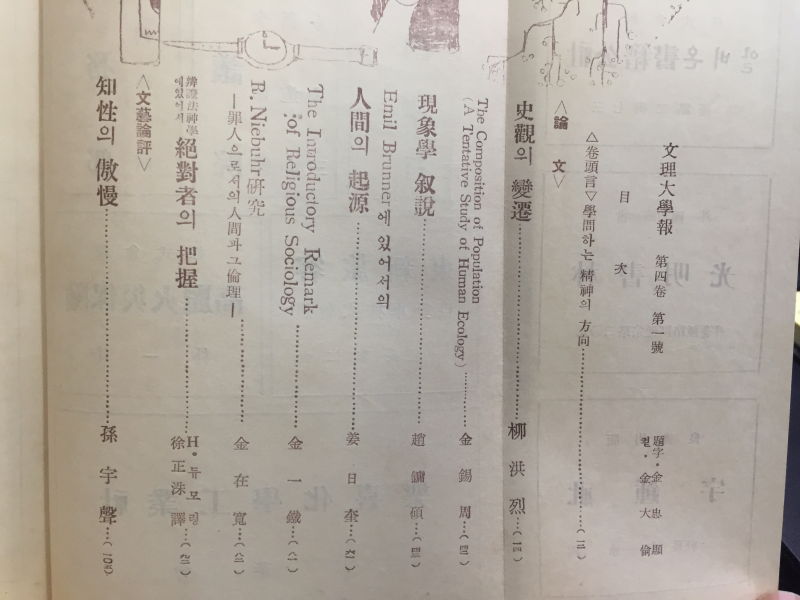 文理大學報 第四卷 第一號
目次
題字・金忠顯
컽・金大倫
△卷頭言▽學問하는 精神의 方向
〈論文〉
史觀의 變遷 柳洪烈
The Composition of Population
(A Tentative Study of Human Ecology) 金錫周
現象學 叙說 趙鏞碩
Emil Brunner에 있어서의
人間의 起源 姜日奎
The Introductory Remark
of Religious Sociology 金一鐵
R. Niebuhr硏究
―罪人으로서의 人間과 그 倫理― 金在寬
辨證法神學에있어서 絕對者의 把握 H・듀모링
徐正洙 譯
〈文藝論評〉
知性의 傲慢 孫宇聲